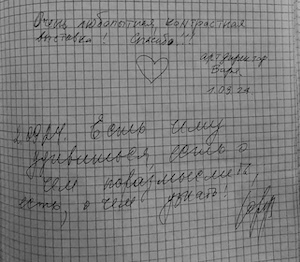 Очень любопытная, контрастная
выставка! Спасибо!!!
арт директор
Варя.
1.03.24
2.03.24. Есть чему
удивиться, есть о
чем поразмыслить
есть, о чем узнать!